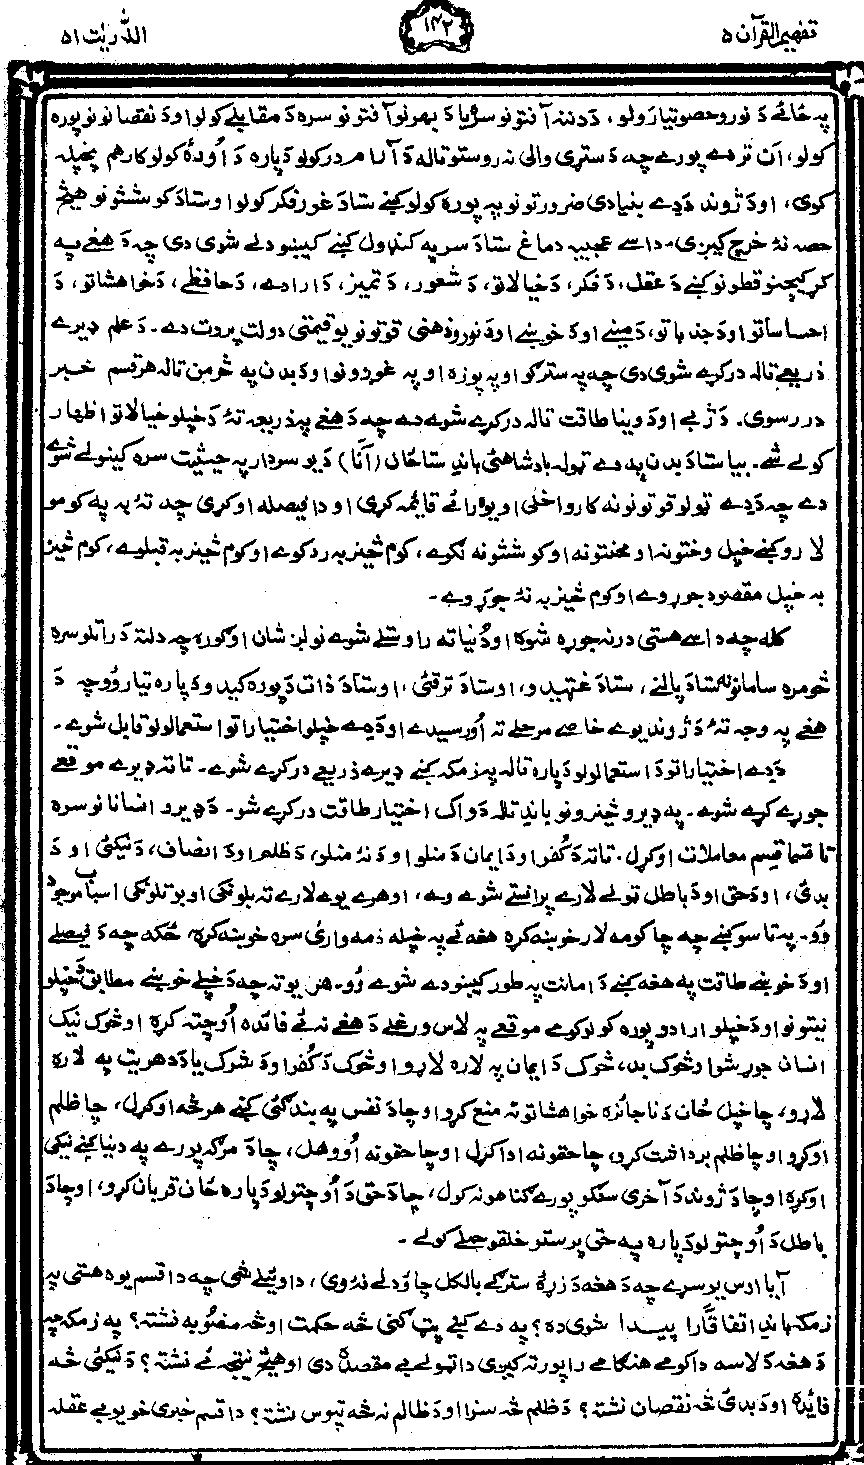 تفهیم القرآن ۵
۱۴۲
الذّٰریٰت ۵۱
په ځائے د نورو حصو تیارولو، د دننه آفتونو سره یا د بهرنو آفتونو سره د مقابلے کولو او د نقصانونو پوره
کولو، ان تر دے پورے چه د ستړی والی نه روستو تاله د آرام درکولو دپاره د اُوده کولو کار هم پخپله
کوی، او د ژوند د دے بنیادی ضرورتونو په پوره کولو کښے ستا د غور فکر کولو او ستا د کوششونو هیڅ
حصه نهٔ خرچ کیږی. داسے عجیبه دماغ ستا د سر په کنډول کښے کیښودلے شوی دی چه د هغے په
کړیکیچنو قطونو کښے د عقل، د فکر، د خیالاتو، د شعور، د تمیز، د ارادے، د حافظے، د خواهشاتو، د
احساساتو او د جذباتو، د مینے او د خوښے او د نورو ذهنی قوتونو یو قیمتی دولت پروت دے. د علم ډیرے
ذریعے تاله درکړے شوی دی چه په سترګو او په پوزه او په غوږونو او د بدن په څرمن تاله هر قسم خبر
در رسوی. د ژبے او د وینا طاقت تاله درکړے شوے دے چه د هغے په ذریعه تهٔ د خپلو خیالاتو اظهار
کولے شے. بیا ستا د بدن په دے ټوله بادشاهئ باندِ ستا ځان (اَنَا) د یو سردار په حیثیت سره کینولے شوے
دے چه د دے ټولو قوتونو نه کار واخلی او یوه رائے قائمه کړی او دا فیصله اوکړی چه تهٔ به په کومو
لارو کښے خپل وختونه او محنتونه او کوششونه لګوے، کوم څیز به رد کوے او کوم څیز به قبلوے، کوم څیز
به خپل مقصود جوړوے او کوم څیز به نهٔ جوړوے.
کله چه داسے هستی درنه جوړه شوه او دُنیا ته راوستلے شوے نو لږ شان اوګوره چه دلته د راتلو سره
څومره سامانونه ستا د پالنے، ستا د غټیدو، او ستا د ترقئ، او ستا د ذات د پوره کیدو دپاره تیار وُو چه د
هغے په وجه تهٔ د ژوند یوے خاصے مرحلے ته اُورسیدے او د دے خپلو اختیاراتو استعمالولو قابل شوے.
د دے اختیاراتو د استعمالولو دپاره تاله په زمکه کښے ډیرے ذریعے درکړے شوے. تا ته ډیرے موقعے
جوړے کړے شوے. په ډیرو څیزونو باندِ تاله د واک اختیار طاقت درکړے شو. د ډیرو انسانانو سره
تا قسما قسم معاملات اوکړل. تا ته د کُفر او د ایمان د منلو او د نهٔ منلو، د ظلم او د انصاف، د نیکئ او د
بدئ، او د حق او د باطل ټولے لارے پرانستے شوے وے، او هرے یوے لارے ته بلونکی او بوتلونکی اسباب موجود
وُو. په تاسو کښے چه چا کومه لار خوښه کړه هغه ئے په خپله ذمه وارئ سره خوښه کړه، ځکه چه د فیصلے
او د خوښے طاقت په هغه کښے د امانت په طور کیښودے شوے وُو. هر یو ته چه د خپلے خوښے مطابق د خپلو
نیتونو او د خپلو ارادو پوره کولو کومے موقعے په لاس ورغلے د هغے نه ئے فائده اُوچته کړه او څوک نیک
انسان جوړ شو او څوک بد، څوک د ایمان په لاره لاړو او څوک د کُفر او د شرک یا د دهریت په لاره
لاړو، چا خپل ځان د ناجائزه خواهشاتو نه منع کړو او چا د نفس په بندګئ کښے هر څه اوکړل، چا ظلم
اوکړو او چا ظلم برداشت کړو، چا حقونه ادا کړل او چا حقونه اُووهل، چا د مرګه پورے په دنیا کښے نیکی
اوکړه او چا د ژوند د آخری سلګو پورے ګناهونه کول، چا د حق د اُوچتولو دپاره ځان قربان کړو، او چا د
باطل د اُوچتولو دپاره په حق پرستو خلقو حملے کولے.
آیا اوس یو سړے چه د هغه د زړهٔ سترګے بالکل چاودلے نهٔ وی، دا وئیلے شی چه دا قسم یوه هستی په
زمکه باندِ اتفاقًا پیدا شوی ده؟ په دے کښے پټ کنی څه حکمت او څه منصوبه نشته؟ په زمکه چه
د هغه د لاسه دا کومے هنګامے راپورته کیږی دا ټولے بے مقصده دی او هیڅ نتیجه ئے نشته؟ د نیکئ څه
فائده او د بدئ څه نقصان نشته؟ د ظلم څه سزا او د ظالم نه څه تپوس نشته؟ دا قسم خبری خو یو بے عقله